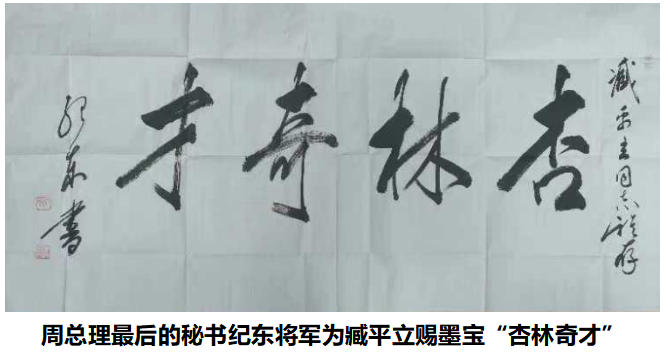 臧平立同志雅存
杏林奇才
纪东书
周总理最后的秘书纪东将军为臧平立赐墨宝“杏林奇才”